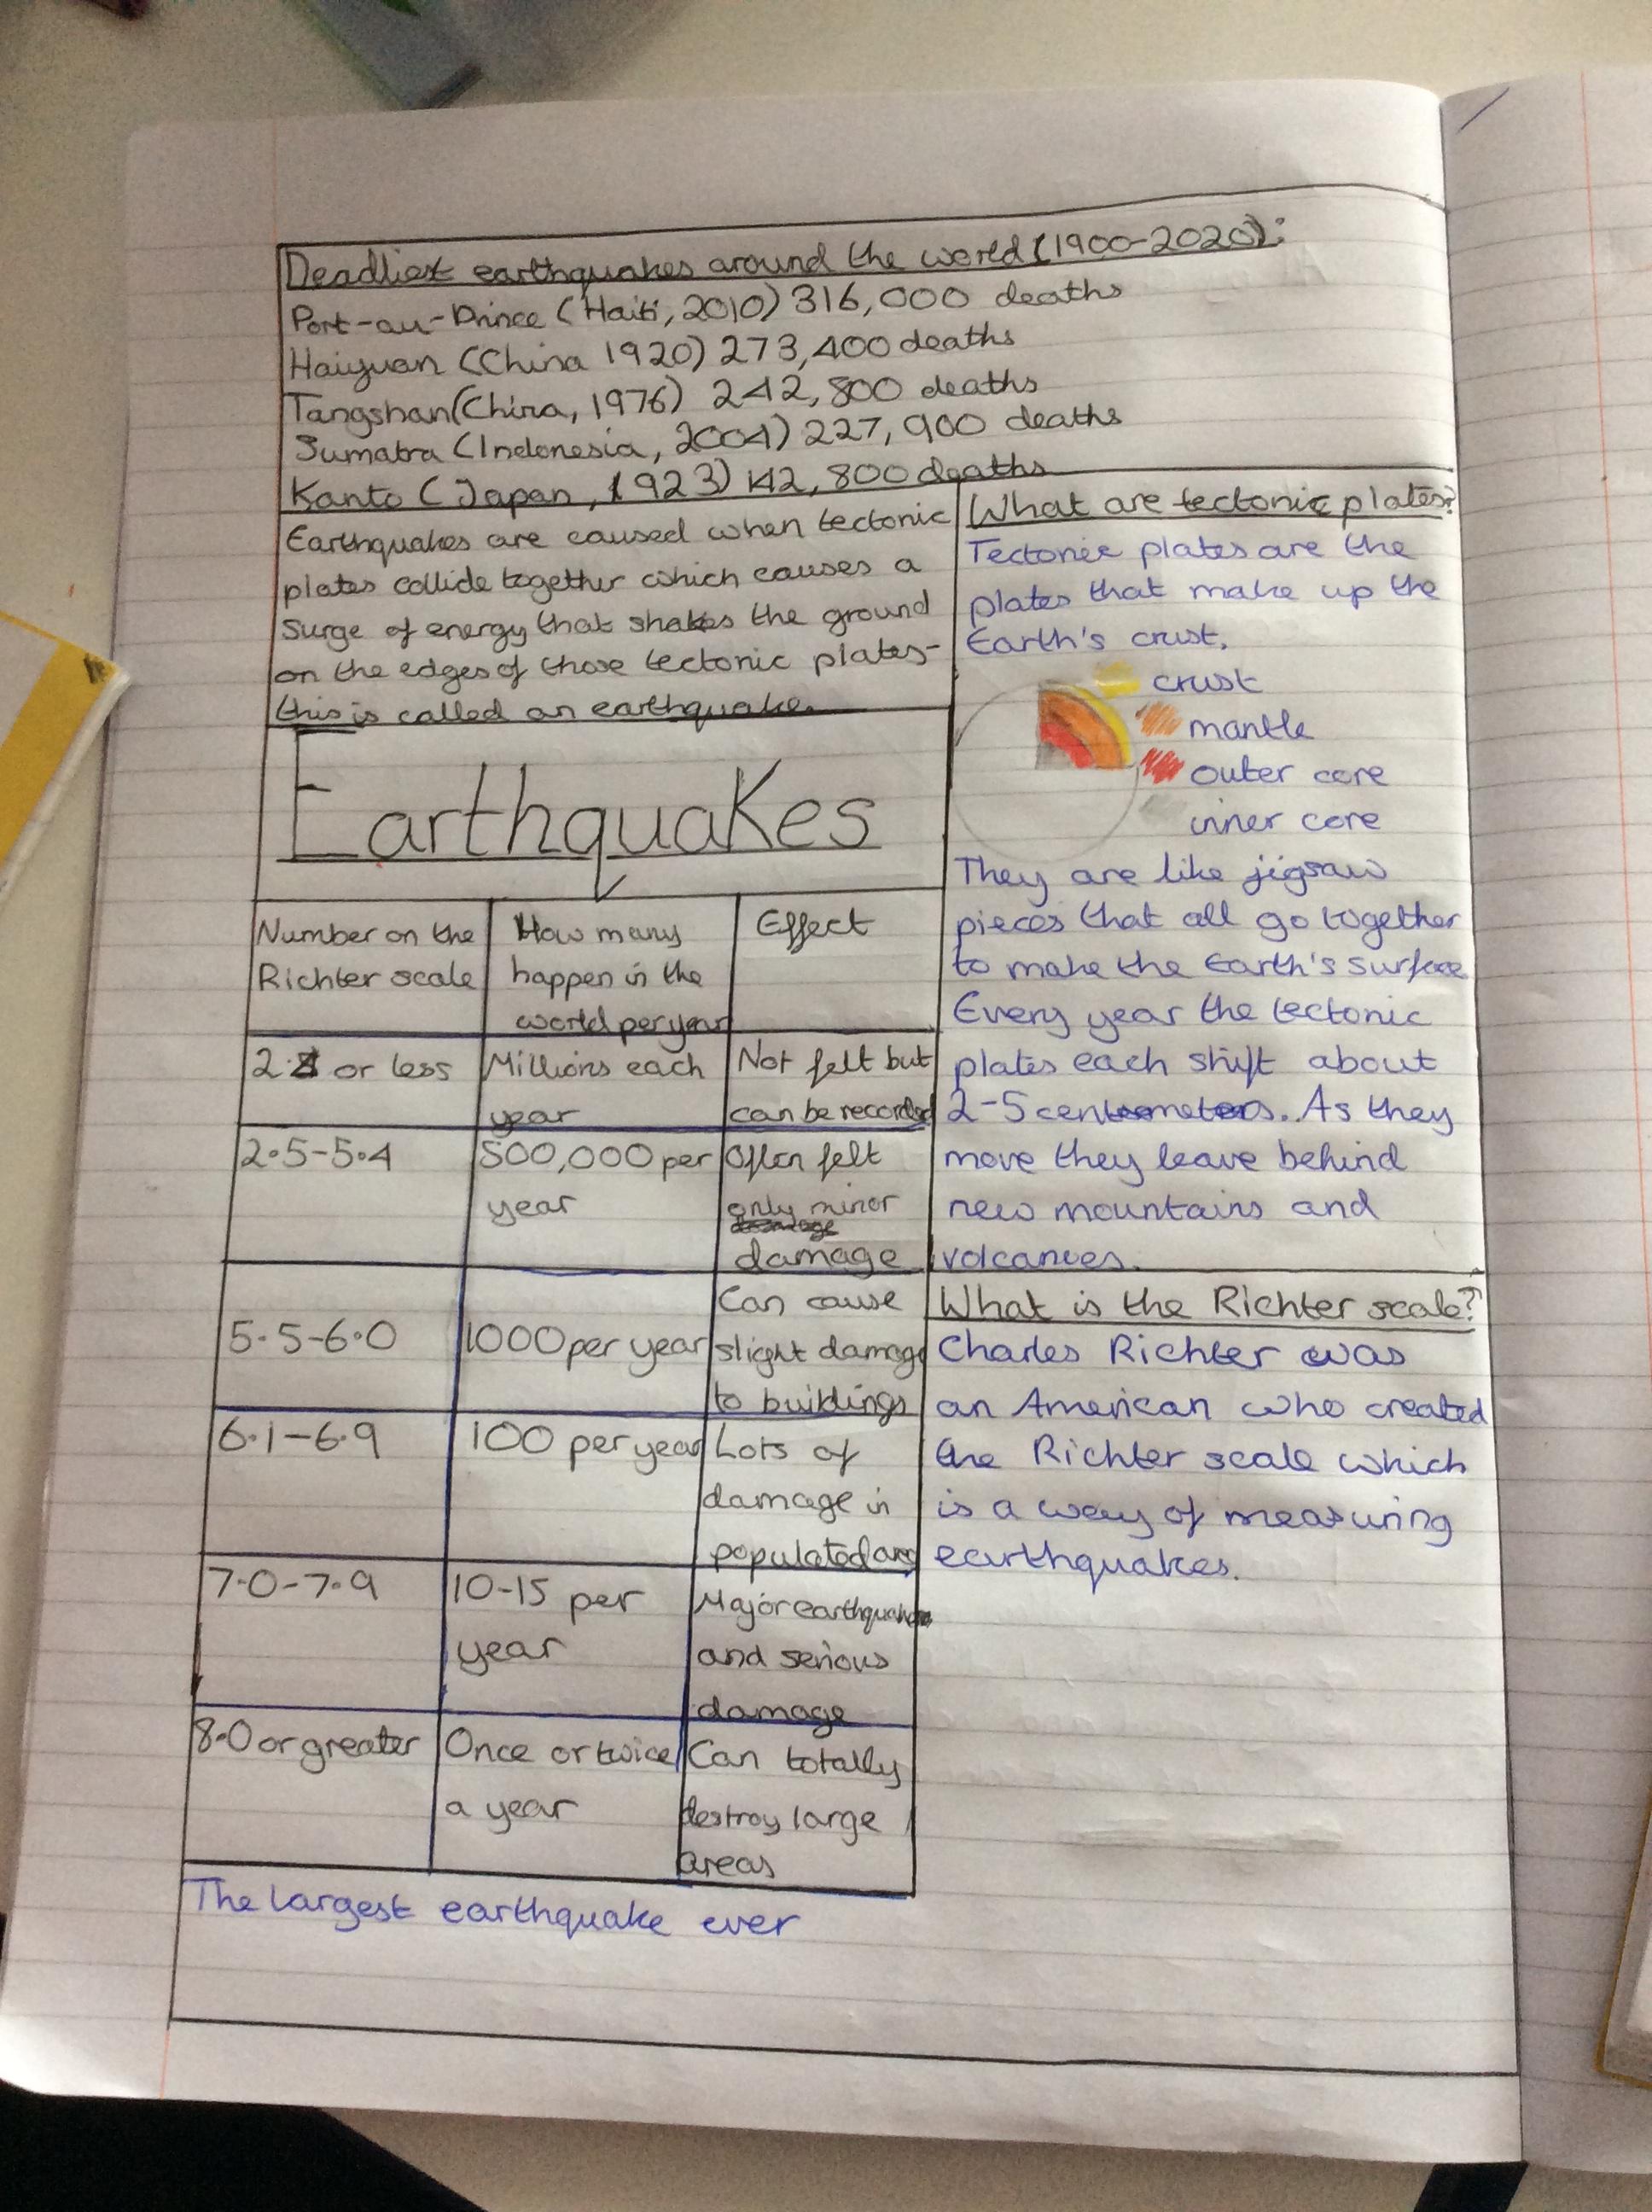 Deadliest earthquakes around the world (1900-2020):
Port-au-Prince (Haiti, 2010) 316,000 deaths
Haiyuan (China 1920) 273,400 deaths
Tangshan (China, 1976) 242,800 deaths
Sumatra (Indonesia, 2004) 227,900 deaths
Kanto (Japan, 1923) 142,800 deaths
Earthquakes are caused when tectonic
plates collide together which causes a
surge of energy that shakes the ground
on the edges of those tectonic plates-
this is called an earthquake.
Earthquakes
Number on the
Richter scale
How many
happen in the
world per year
Effect
or less
Millions each
year
Not felt but
can be recorded
2.5-5.4
500,000 per
year
Often felt
only minor
damage
5.5-6.0
1000 per year
Can cause
slight damage
to buildings
6.1-6.9
100 per year
Lots of
damage in
populated
7.0-7.9
10-15 per
year
Major earthquake
and serious
damage
8.0 or greater
Once or twice
a year
Can totally
destroy large
areas
The largest earthquake ever
What are tectonic plates?
Tectonic plates are the
plates that make up the
Earth's crust.
crust
mantle
outer core
inner core
They are like jigsaw
pieces that all go together
to make the Earth's surface
Every year the tectonic
plates each shift about
2-5 centemeters. As they
move they leave behind
new mountains and
volcanoes.
What is the Richter scale?
Charles Richter was
an American who created
the Richter scale which
is a way of measuring
earthquakes.